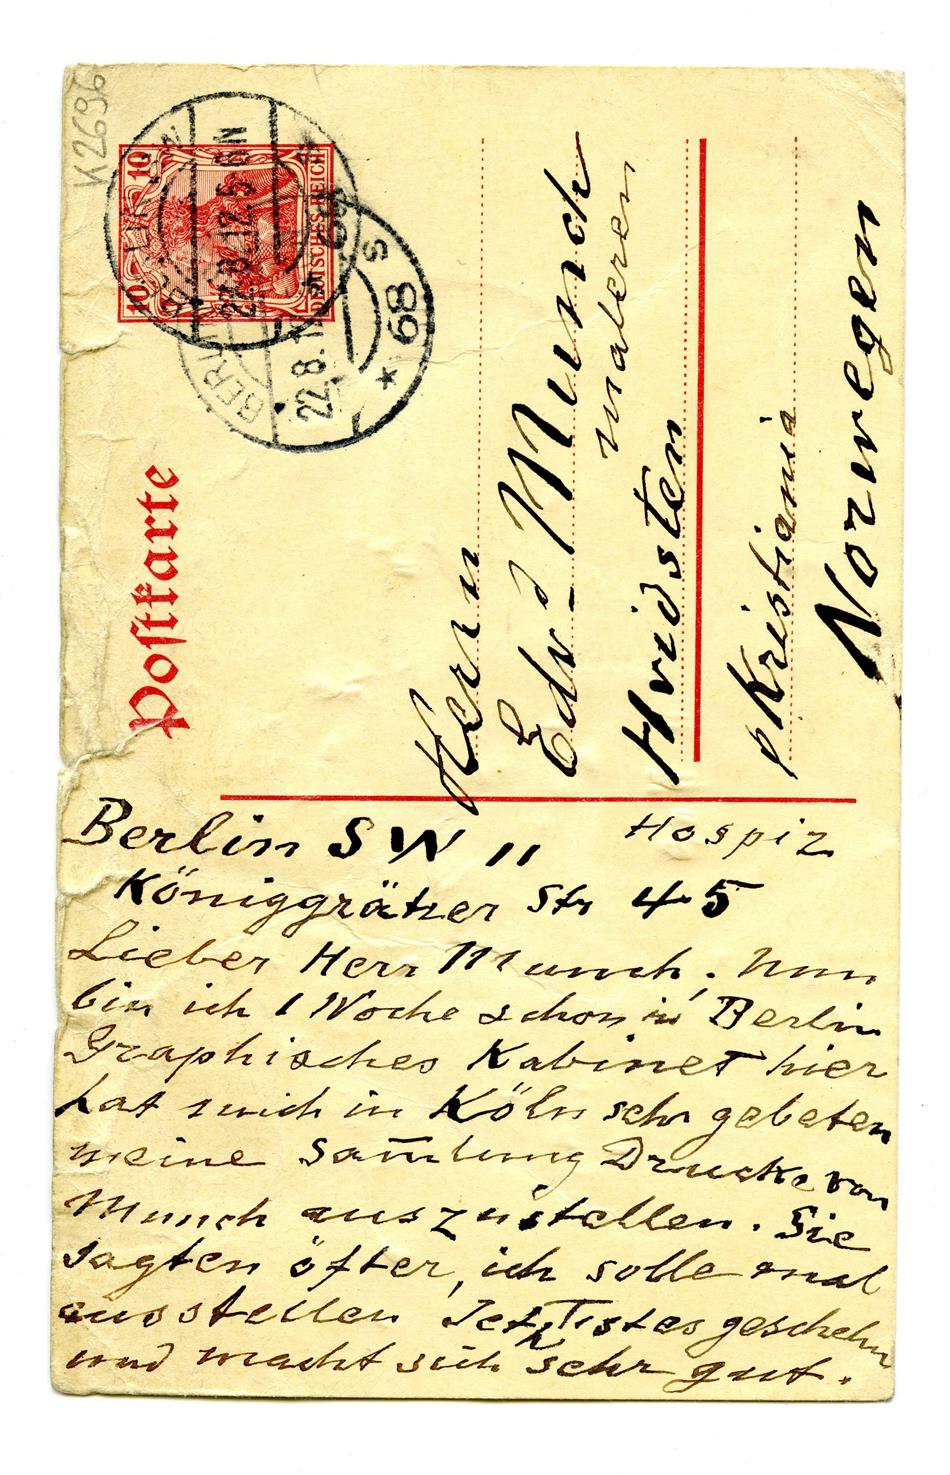 K2696
10 10
DEUTSCHES REICH
BERLIN
22.8.12.5-6N
BERLIN S
22.8.1
* 68
Postkarte
Herrn
Edv. Munch
maleren
Hvidsten
p Kristiania
Norwegen
Berlin SW 11 Hospiz
Königgrätzer Str 45
Lieber Herr Munch, Nun
bin ich 1 Woche schon in Berlin
Graphisches Kabinet hier
hat mich in Köln sehr gebeten
meine Sam̄lung Drucke von
Munch auszustellen. Sie
sagten öfter, ich solle mal
ausstellen Jetzt ist es geschehn
und macht sich sehr gut.